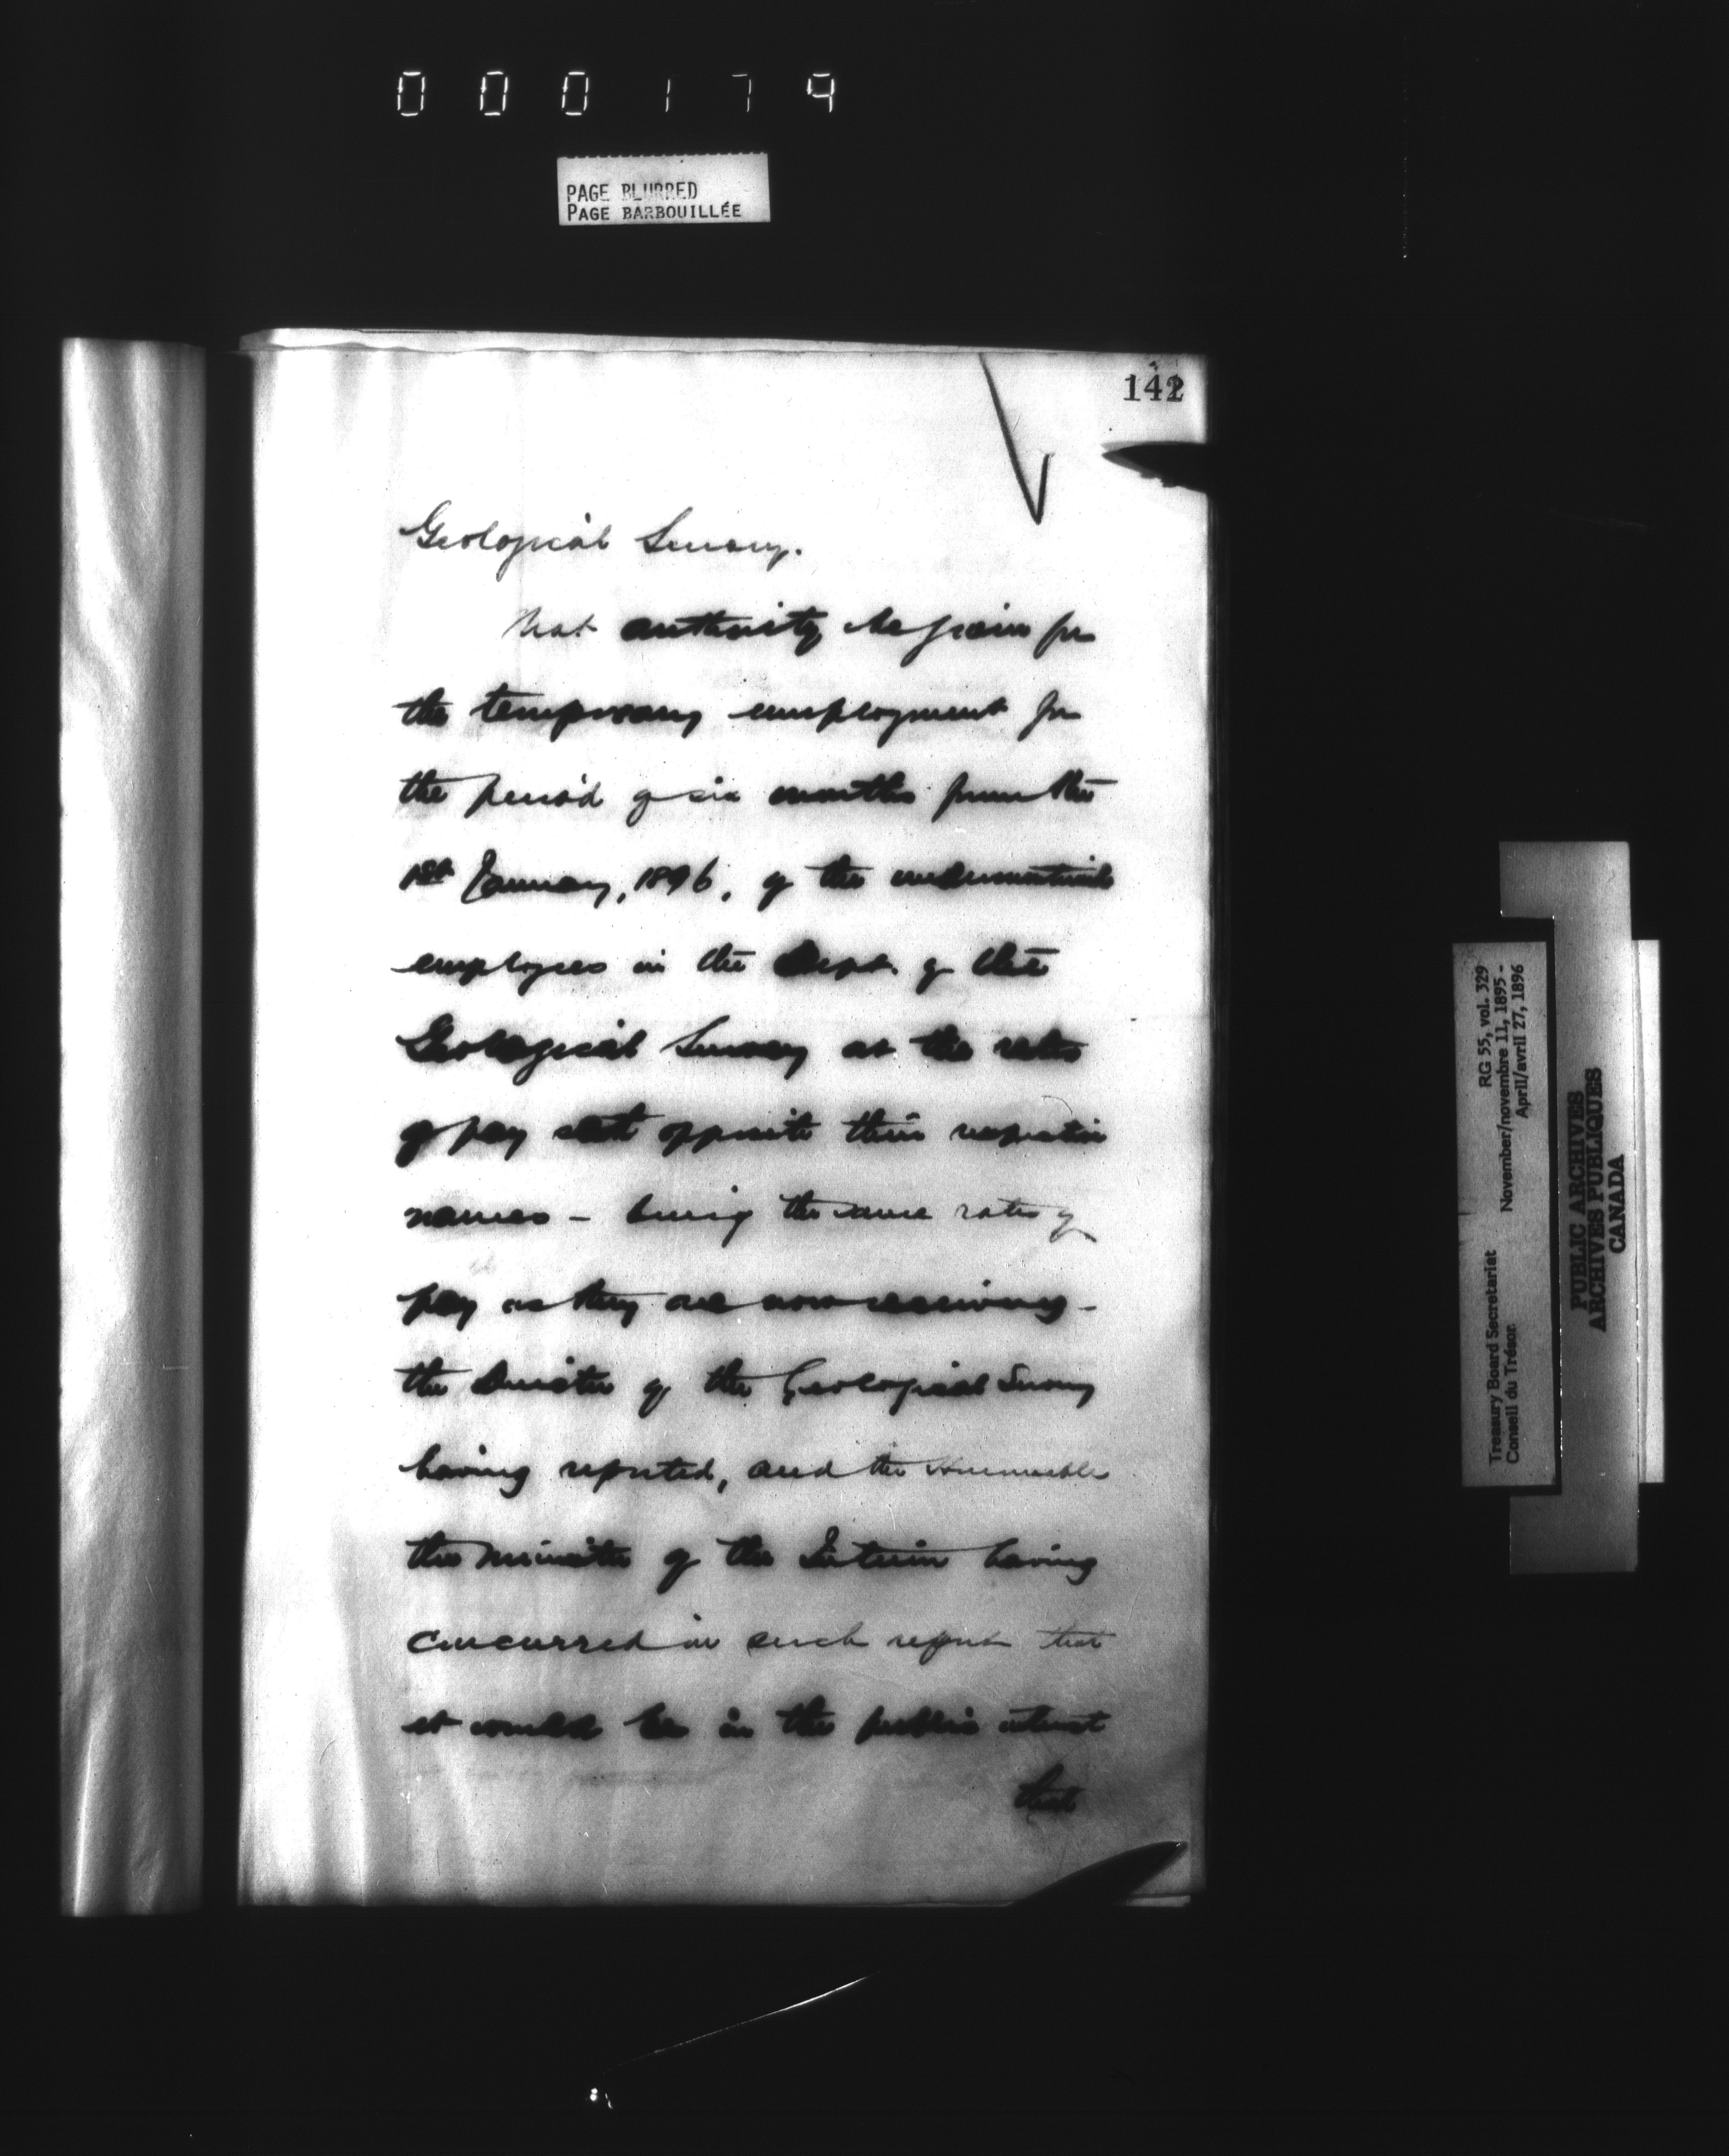 000179
PAGE BLURRED
PAGE BARBOUILLÉE
142
Geological Survey.
That authority be given for
the temporary employment for
the period of six months from the
1st January, 1896, of the undermentioned
employees in the Dept. of the
Geological Survey at the rates
of pay set opposite their respective
names - being the same rates of
pay as they are now receiving -
the Director of the Geological Survey
having reported, and the Honourable
the Minister of the Interior having
concurred in such report that
it would be in the public interest
that
Treasury Board Secretariat RG 55, vol. 329
Conseil du Trésor November/novembre 11, 1895 -
April/avril 27, 1896
PUBLIC ARCHIVES
ARCHIVES PUBLIQUES
CANADA